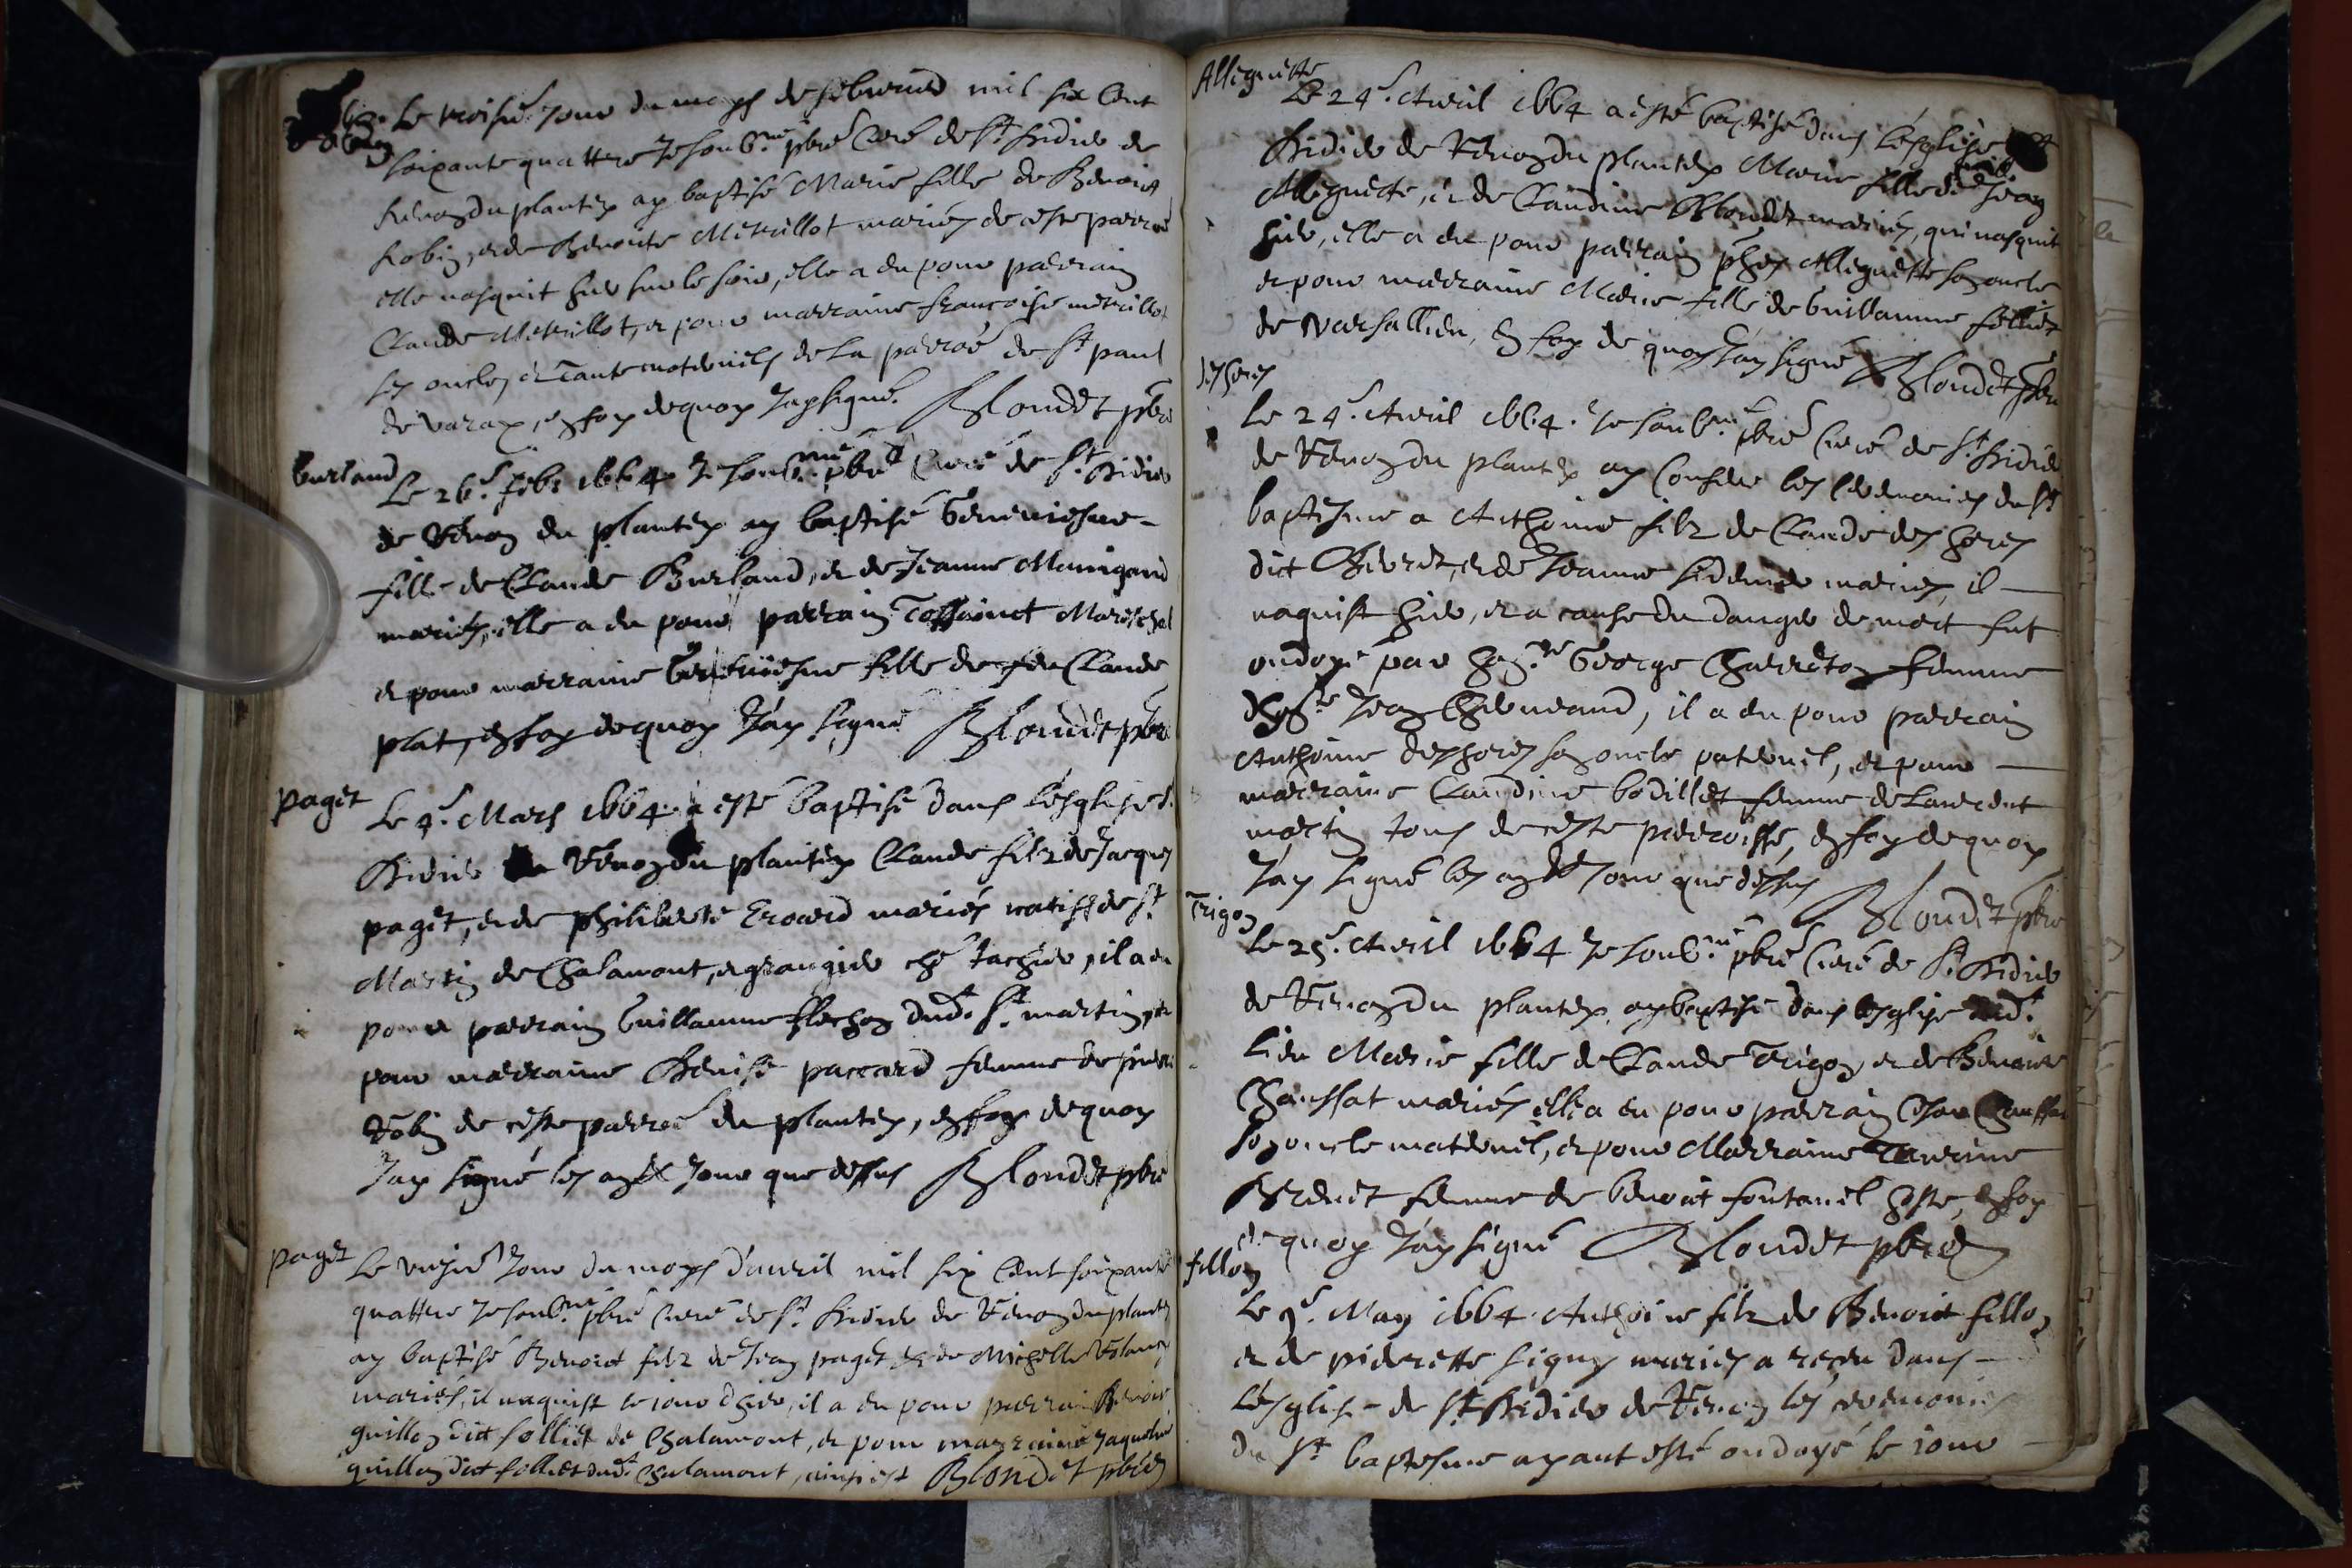 Le troisie Jour du moys de febvrier mil six Cent
soixante quattre Je soubne pbre Curé de St Didier de
Renon du plantey ay baptisé Marie fille de Benoist
Robin, et de Benoite Metrillot mariés de ceste parroe
elle nasquit hier sur le soir, elle a eu pour parrain
Claude Metrillot, et pour marraine francoise metrillot
ses oncles et Tante maternels de la parroe de St paul
de varax, en foy dequoy Jay signé. Blondet pbre
burland
Le 26e. feb. 1664 Je soubne. pbre Curé de St Didier
de Renon du plantey ay baptisé Geneviesve
fille de Claude Burland, et de Jeanne Mainigand
mariés, elle a eu pour parrain Tossainct Mareschal
et pour marraine Geneviesve fille de feu Claude
plat, en foy dequoy J'ay signé Blondet pbre
paget
Le 4e. Mars 1664 a esté baptisé dans l'esglise S.
Didier de Renon du plantey Claude filz de Jacques
paget, et de philiberte Eroard mariés natifs de St
Martin de Chalamont, et grangier ché tachier, il a eu
pour parrain Guillaume flechon dudt. St. martin, et
pour marraine Denise paccard femme de pierre
Robin de ceste parroe du plantey, en foy dequoy
Jay signé les an et Jour que dessus Blondet pbre
paget
Le unsie Jour du moys d'avril mil six Cent soixante
quattre Je soubne. pbre Curé de St. Didier de Renon du plantey
ay baptisé Benoist filz de Jean paget et de Michelle Rolland
mariés, il naquist le jour d'hier, il a eu pour parrain Benoist
guillon dit folliet de Chalamont, et pour marraine Jaqueline
guillon dit folliet dudt. Chalamont, ainsi est Blondet pbre
Alleguette
Le 24e. Avril 1664 a esté baptisé dans l'esglise St
Didier de Renon du plantey Marie fille de Jean
Alleguette, et de Claudine Blondet mariés, qui nasquit
hier, elle a eu pour parrain phes Alleguette son oncle
et pour marraine Marie fille de Guillaume folliet
de Marsallieu, en foy de quoy J'ay signé Blondet pbre
des hores
Le 24e. Avril 1664. Je soubne pbre Curé de St Didier
de Renon du plantey ay Conferé les Ceremonies du St
baptesme a Anthoine filz de Claude des hores
dit Chevret, et de Jeanne mariés, il
naquist hier, et a cause du danger de mort fut
ondoyé par honte George Charreton femme
d'honte Jean Chevreand, il a eu pour parrain
Anthoine des hores son oncle paternel, et pour
marraine Claudine bodillet femme de Laurent
martin tous de ceste parroisse, en foy dequoy
J'ay signé les an et Jour que dessus
Blondet pbre
Trigon
Le 25. Avril 1664 Je soubne pbre Curé de St Didier
de Renon du plantey, ay baptisé dans l'esglise dudt
lieu Marie fille de Claude Trigon, et de Benoite
Chanssat mariés elle a eu pour parrain Chanssat
son oncle maternel, et pour Marraine
Brevet femme de benoit fontanel hoste, en foy
de quoy J'ay signé Blondet pbre
fillon
Le 9e. May 1664 Anthoine filz de Benoist fillon
et de pierrette Signy mariés a receu dans
l'esglise de St Didier de Renon les ceremonies
du St baptesme ayant esté ondoyé le jour